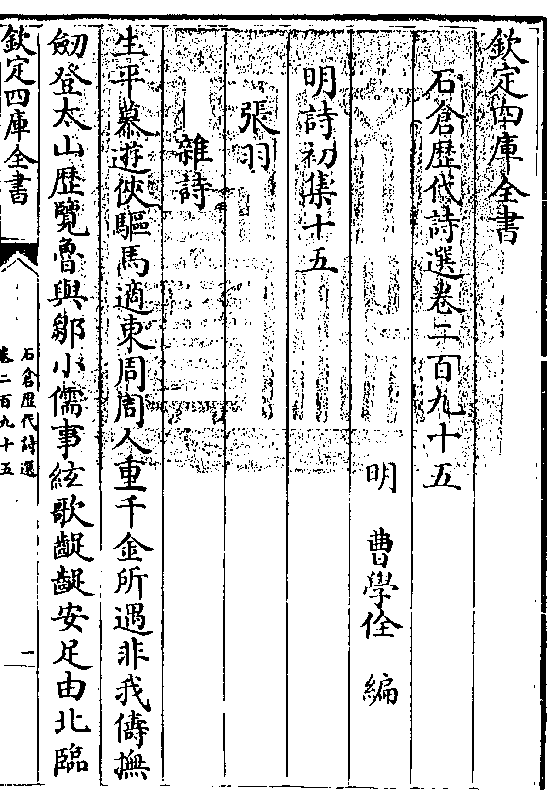 欽定四庫全書
石倉歴代詩選卷二百九十五
明 曹學佺 編
明詩初集十五
張羽
雜詩
生平慕遊俠驅馬適東周周人重千金所遇非我儔撫
劒登太山歴覽魯與鄒小儒事絃歌齪齪安足由北臨
欽定四庫全書
石倉歴代詩選
卷二百九十五
一